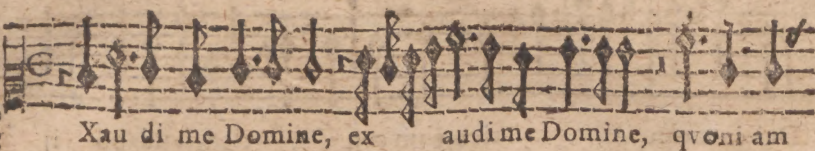 Xau di me Domine, ex audi me Domine, qvoni am